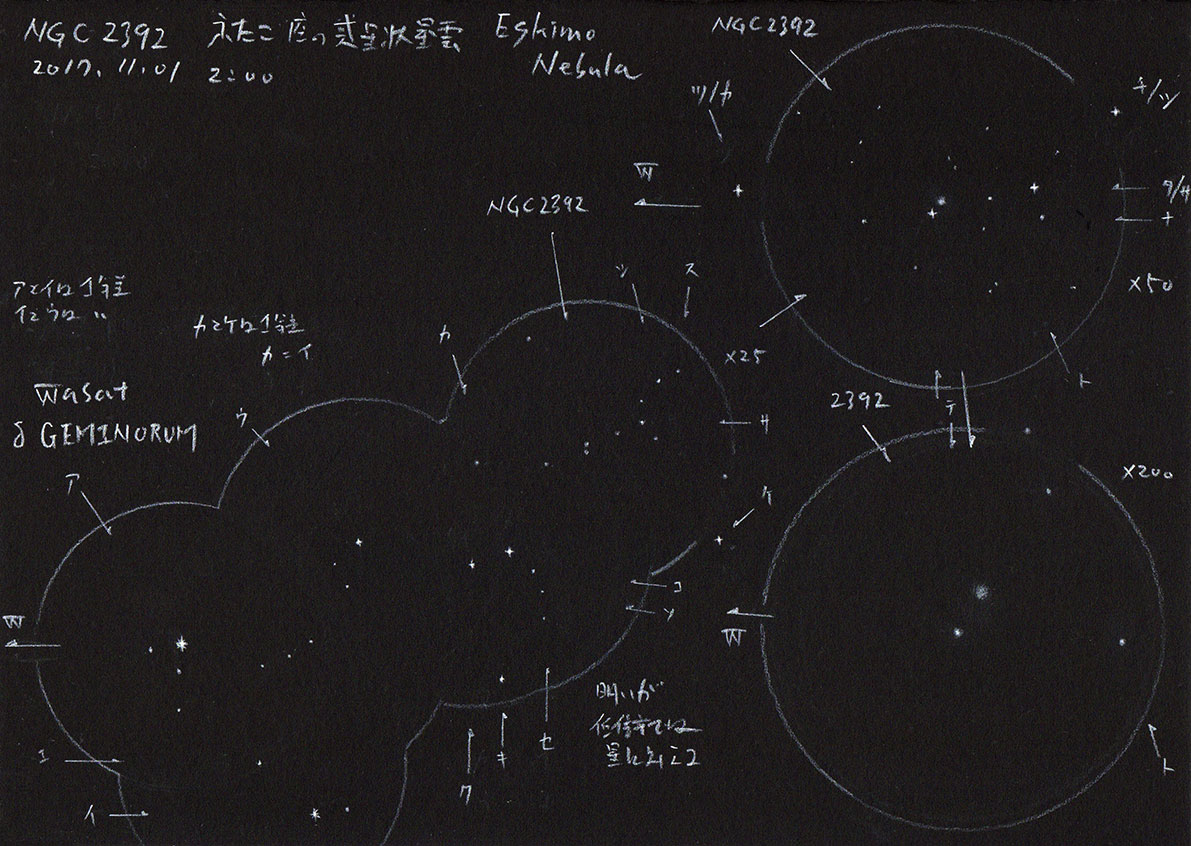 NGC 2392 ふたご座の惑星状星雲 Eskimo
Nebula
2017.11.01 2:00
NGC2392
ツ/カ
チ/ツ
W
タ/サ
ナ
×50
ト
NGC2392
ツ
ス
カ
×25
サ
ケ
コ
ソ
アとイは1等差
イとウは 〃
カとケは1等差
カ=イ
Wasat
δ GEMINORUM
ウ
ア
W
エ
イ
ク
キ
セ
明るいが
低倍率では
星に見える
2392
テ
×200
W
ト